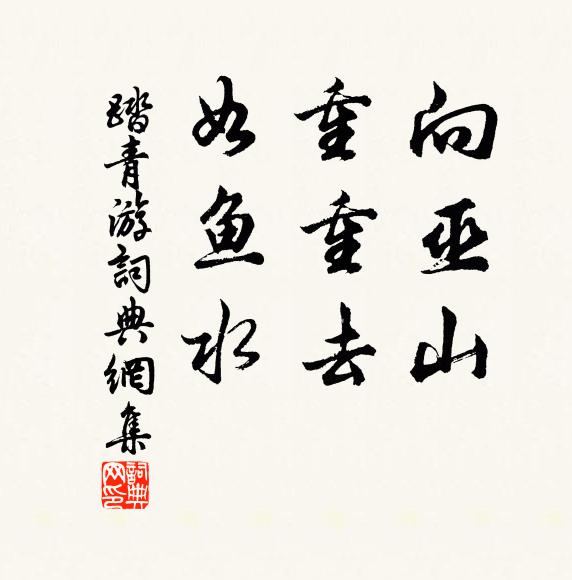 向巫山
重重去
如鱼水
踏青游詞典網集
詞典
网印